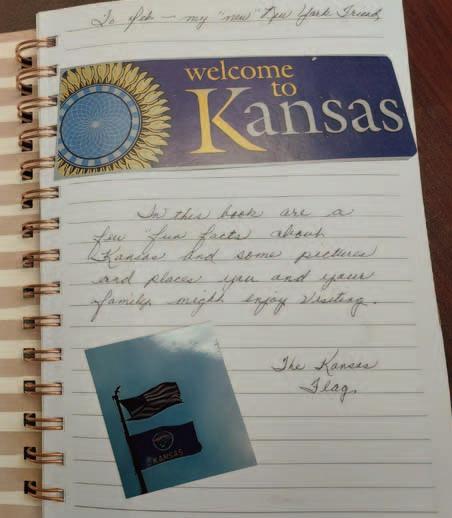 To — my "new" New York Friend,
welcome
to
Kansas
In this book are a
few "fun facts about
Kansas and some pictures
and places you and your
family might enjoy visiting.
The Kansas
Flag.
KANSAS